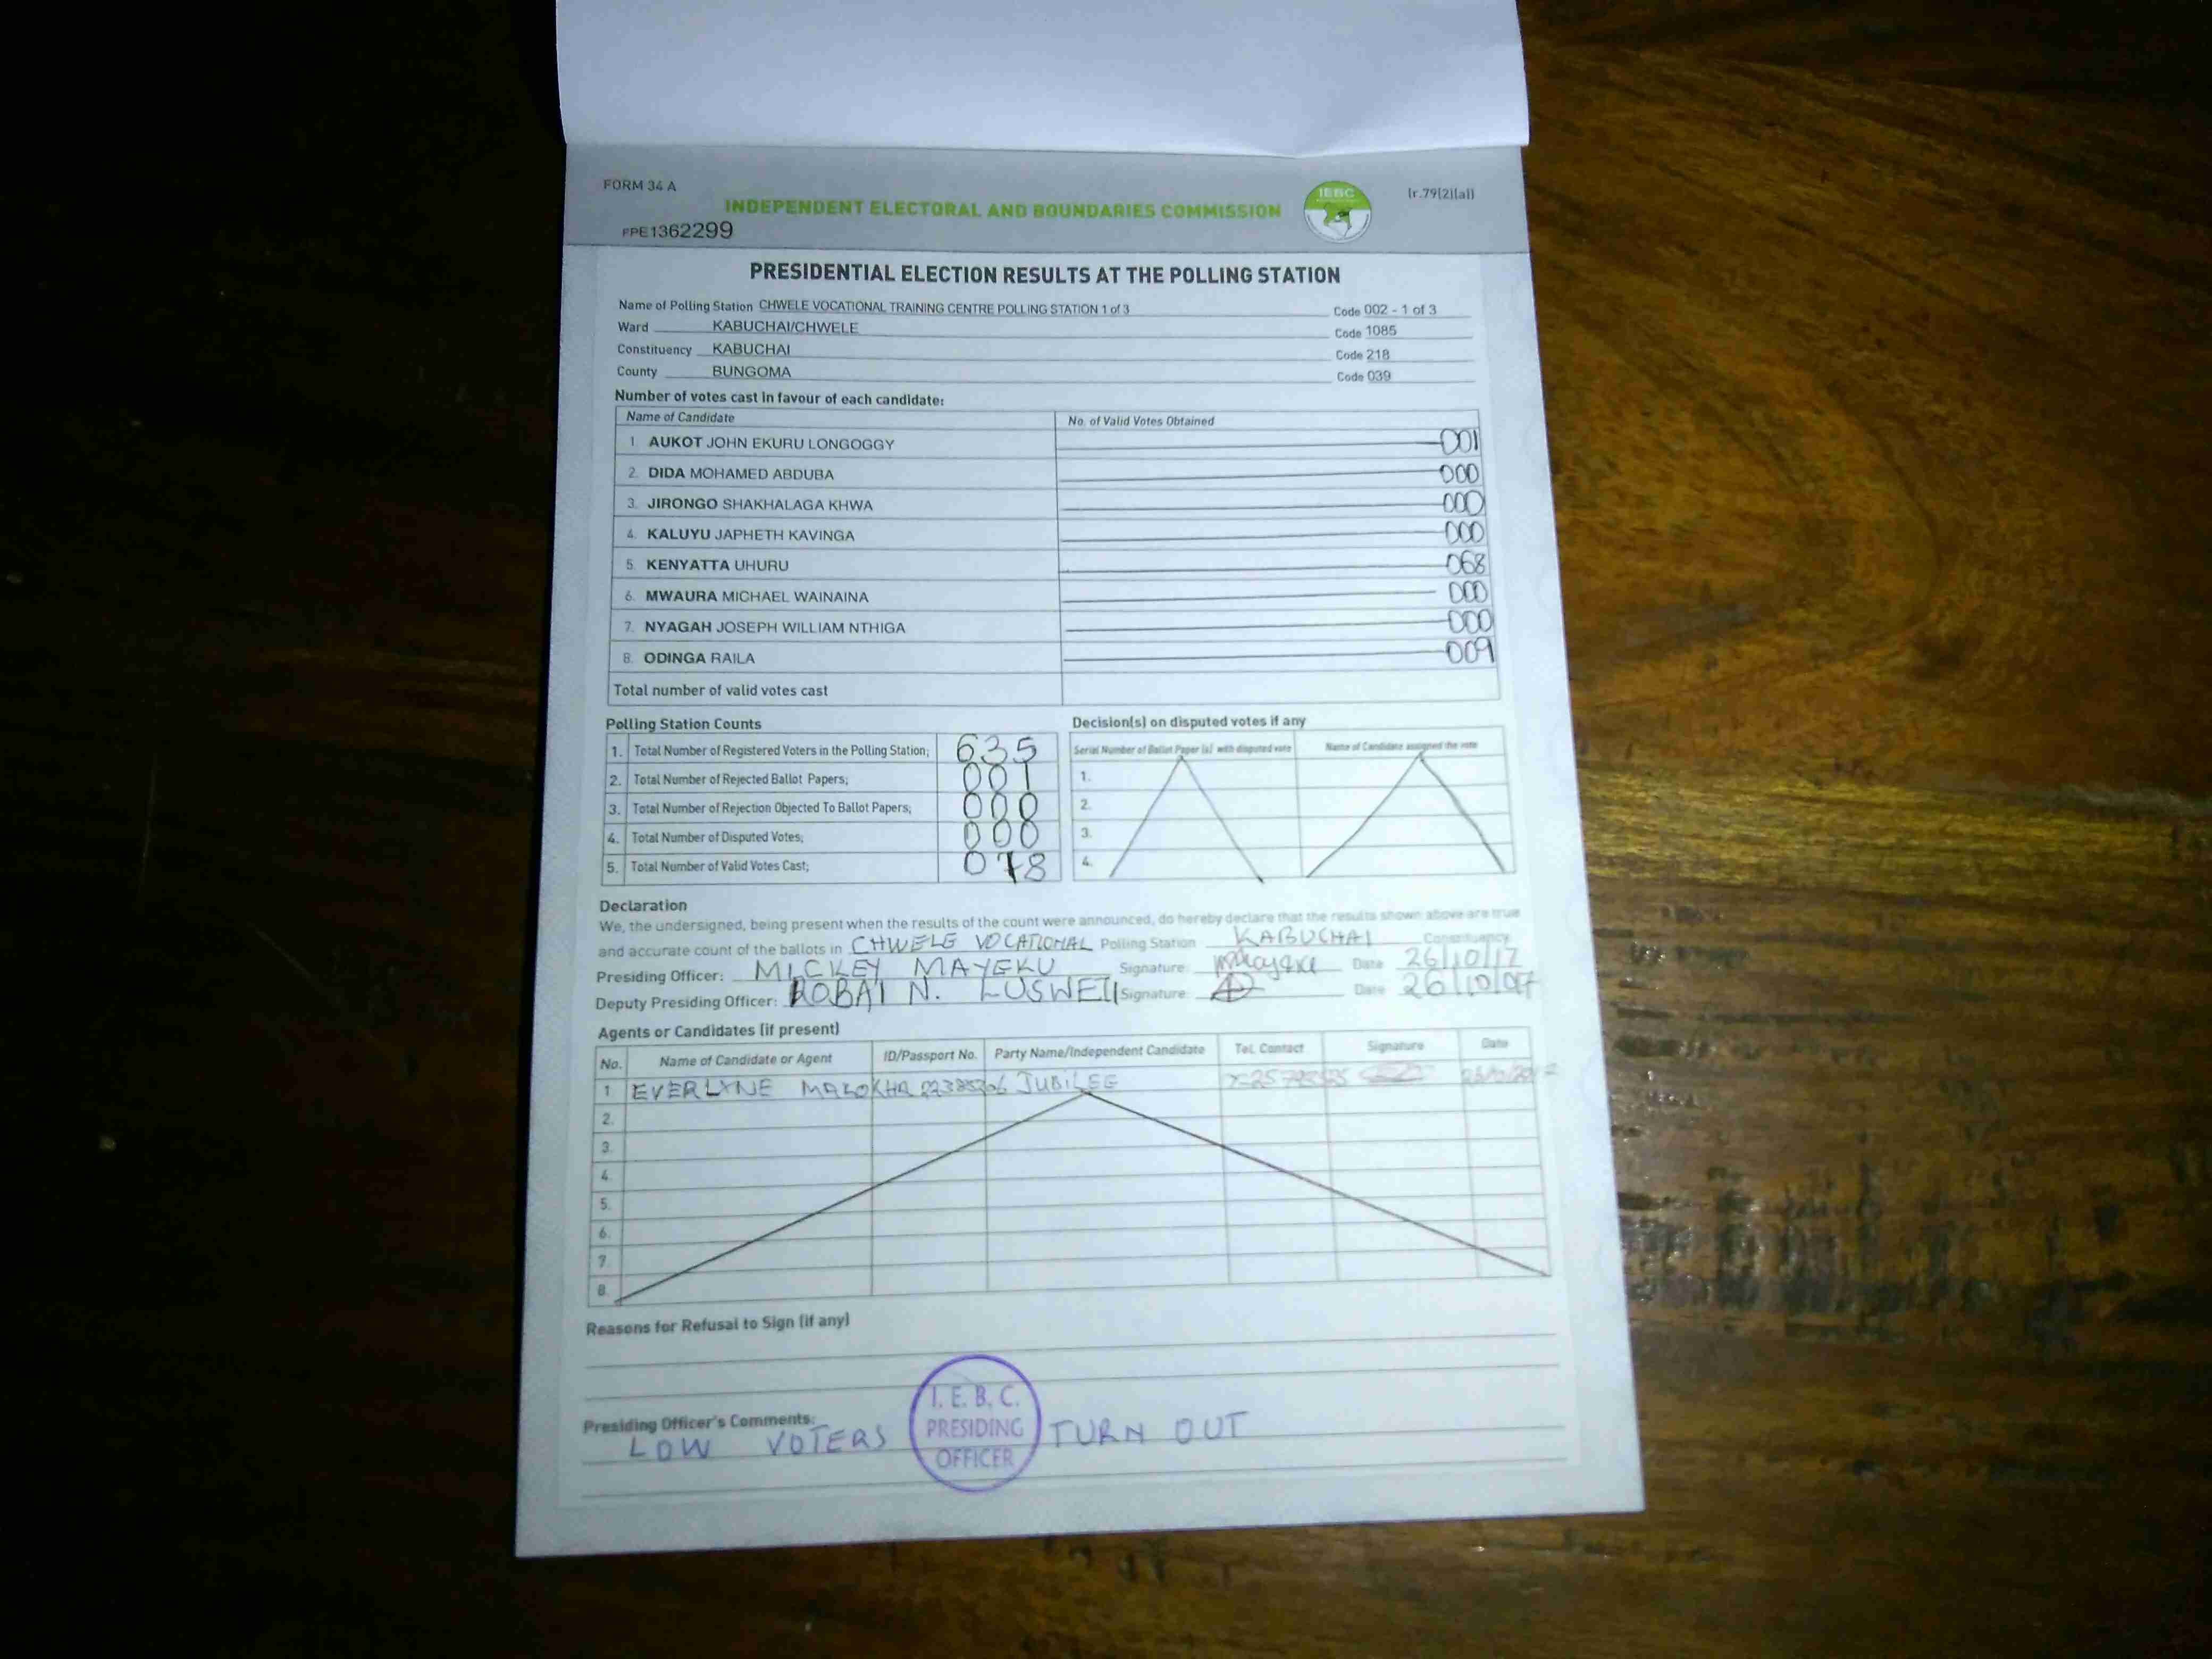 FORM 34 A
INDEPENDENT ELECTORAL AND BOUNDARIES COMMISSION
IEBC
(r.79(2)(a))
PPE1362299
PRESIDENTIAL ELECTION RESULTS AT THE POLLING STATION
Name of Polling Station CHWELE VOCATIONAL TRAINING CENTRE POLLING STATION 1 of 3 Code 002 - 1 of 3
Ward KABUCHAI/CHWELE Code 1085
Constituency KABUCHAI Code 218
County BUNGOMA Code 039
Number of votes cast in favour of each candidate:
Name of Candidate No. of Valid Votes Obtained
1 AUKOT JOHN EKURU LONGOGGY 001
2. DIDA MOHAMED ABDUBA 000
3. JIRONGO SHAKHALAGA KHWA 000
4. KALUYU JAPHETH KAVINGA 000
5. KENYATTA UHURU 068
6. MWAURA MICHAEL WAINAINA 000
7. NYAGAH JOSEPH WILLIAM NTHIGA 000
8. ODINGA RAILA 009
Total number of valid votes cast
Polling Station Counts
1. Total Number of Registered Voters in the Polling Station; 635
2. Total Number of Rejected Ballot Papers; 001
3. Total Number of Rejection Objected To Ballot Papers; 000
4. Total Number of Disputed Votes; 000
5. Total Number of Valid Votes Cast; 078
Decision(s) on disputed votes if any
Serial Number of Ballot Paper (s) with disputed vote Name of Candidate assigned the vote
1.
2.
3.
4.
Declaration
We, the undersigned, being present when the results of the count were announced, do hereby declare that the results shown above are true
and accurate count of the ballots in CHWELE VOCATIONAL Polling Station KABUCHAI Constituency
Presiding Officer: MICKEY MAYEKU Signature: Date 26/10/17
Deputy Presiding Officer: ROBAI N. LUSWETI Signature: Date 26/10/
Agents or Candidates (if present)
No. Name of Candidate or Agent ID/Passport No. Party Name/Independent Candidate Tel. Contact Signature Date
1 EVERLYNE MAKOKHA JUBILEE
2.
3.
4.
5.
6.
7.
8.
Reasons for Refusal to Sign (if any)
Presiding Officer's Comments:
LOW VOTERS TURN OUT
I. E. B. C.
PRESIDING
OFFICER